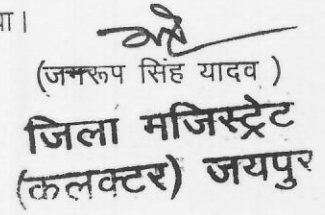 या।
(जगरूप सिंह यादव )
जिला मजिस्ट्रेट
(कलक्टर) जयपुर